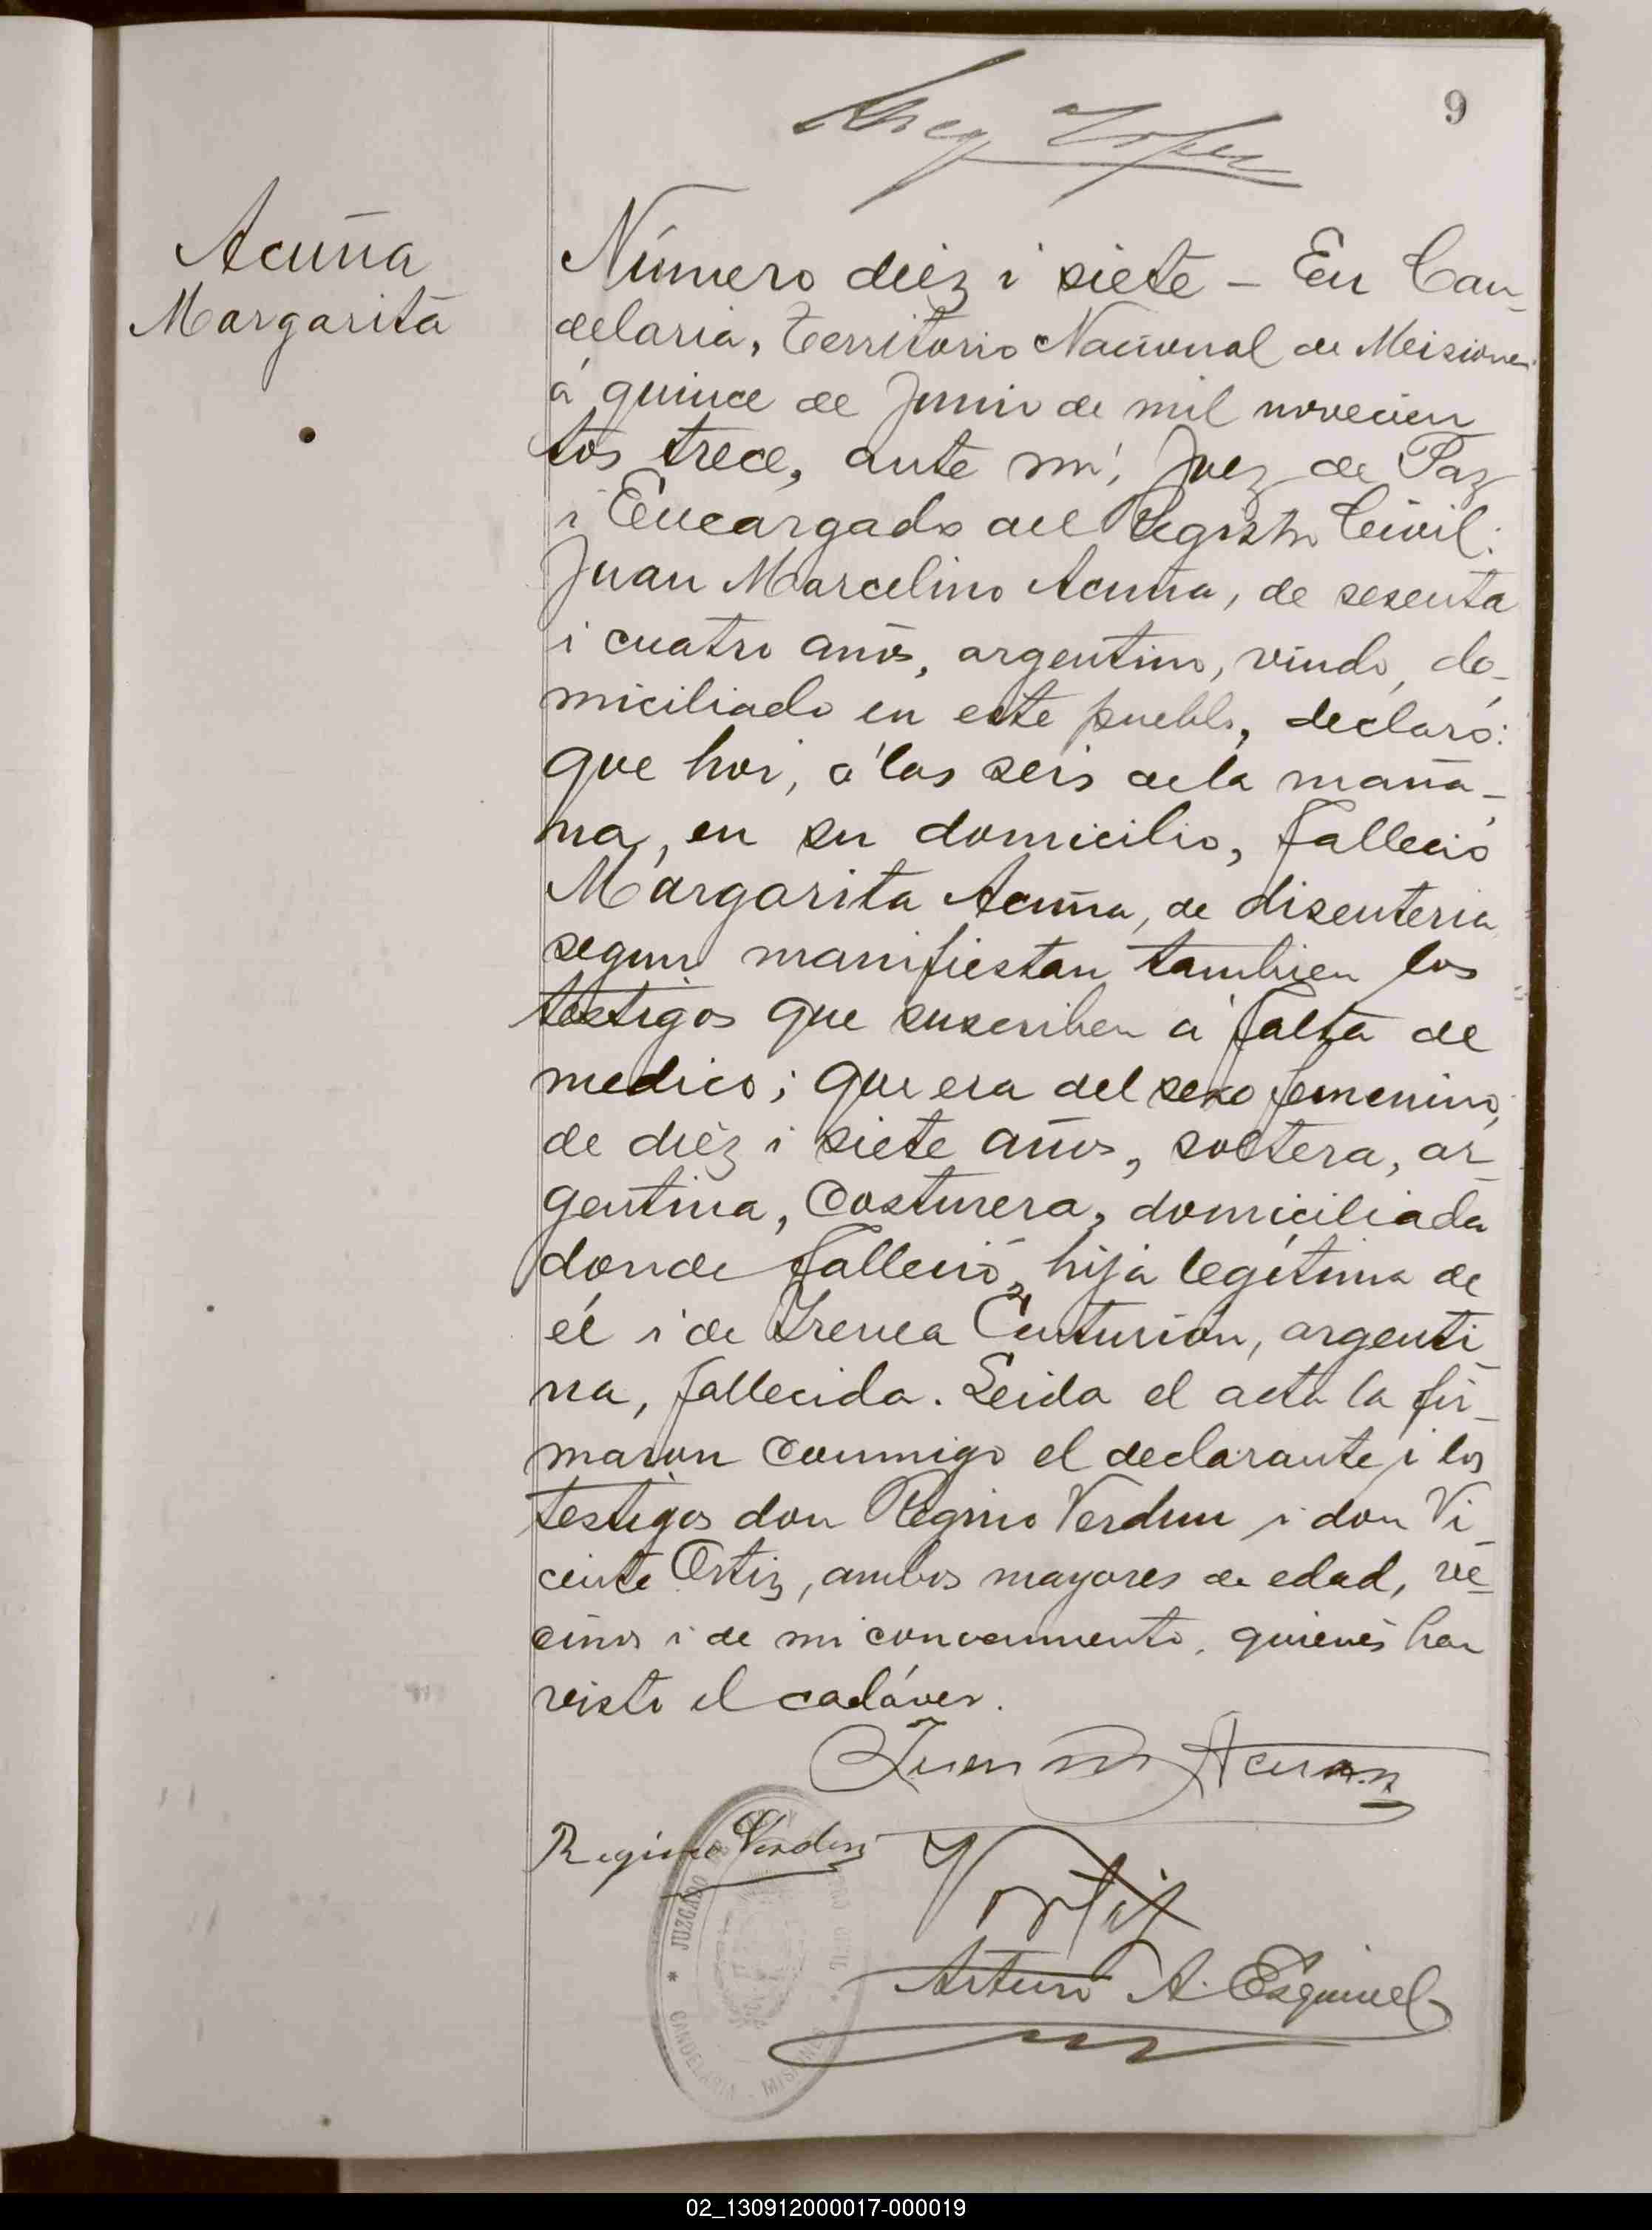 9
Acuña
Margarita
Número diez i siete - En Can-
delaria, Territorio Nacional de Misiones
á quince de Junio de mil novecien
tos trece, ante mí, Juez de Paz
i Encargado del Registro Civil:
Juan Marcelino Acuña, de sesenta
i cuatro años, argentino, viudo, do-
miciliado en este pueblo, declaró:
que hoi, á las seis de la maña-
na, en su domicilio, falleció
Margarita Acuña, de disenteria
segun manifiestan tambien los
testigos que suscriben á falta de
medico; que era del sexo femenino,
de diez i siete años, soltera, ar
gentina, costurera, domiciliada
donde falleció, hija legítima de
él i de Irenea Centurión, argenti
na, fallecida. Leida el acta la fir-
maron conmigo el declarante i los
testigos don Regino Verdun i don Vi
cente Ortiz, ambos mayores de edad, ve-
cinos i de mi conocimiento, quienes han
visto el cadáver.
Juan M Acuña
Regino Verdun
V Ortiz
Arturo A. Esquivel
JUZGADO DE
CIVIL
CANDELARIA - MISIONES
02_130912000017-000019